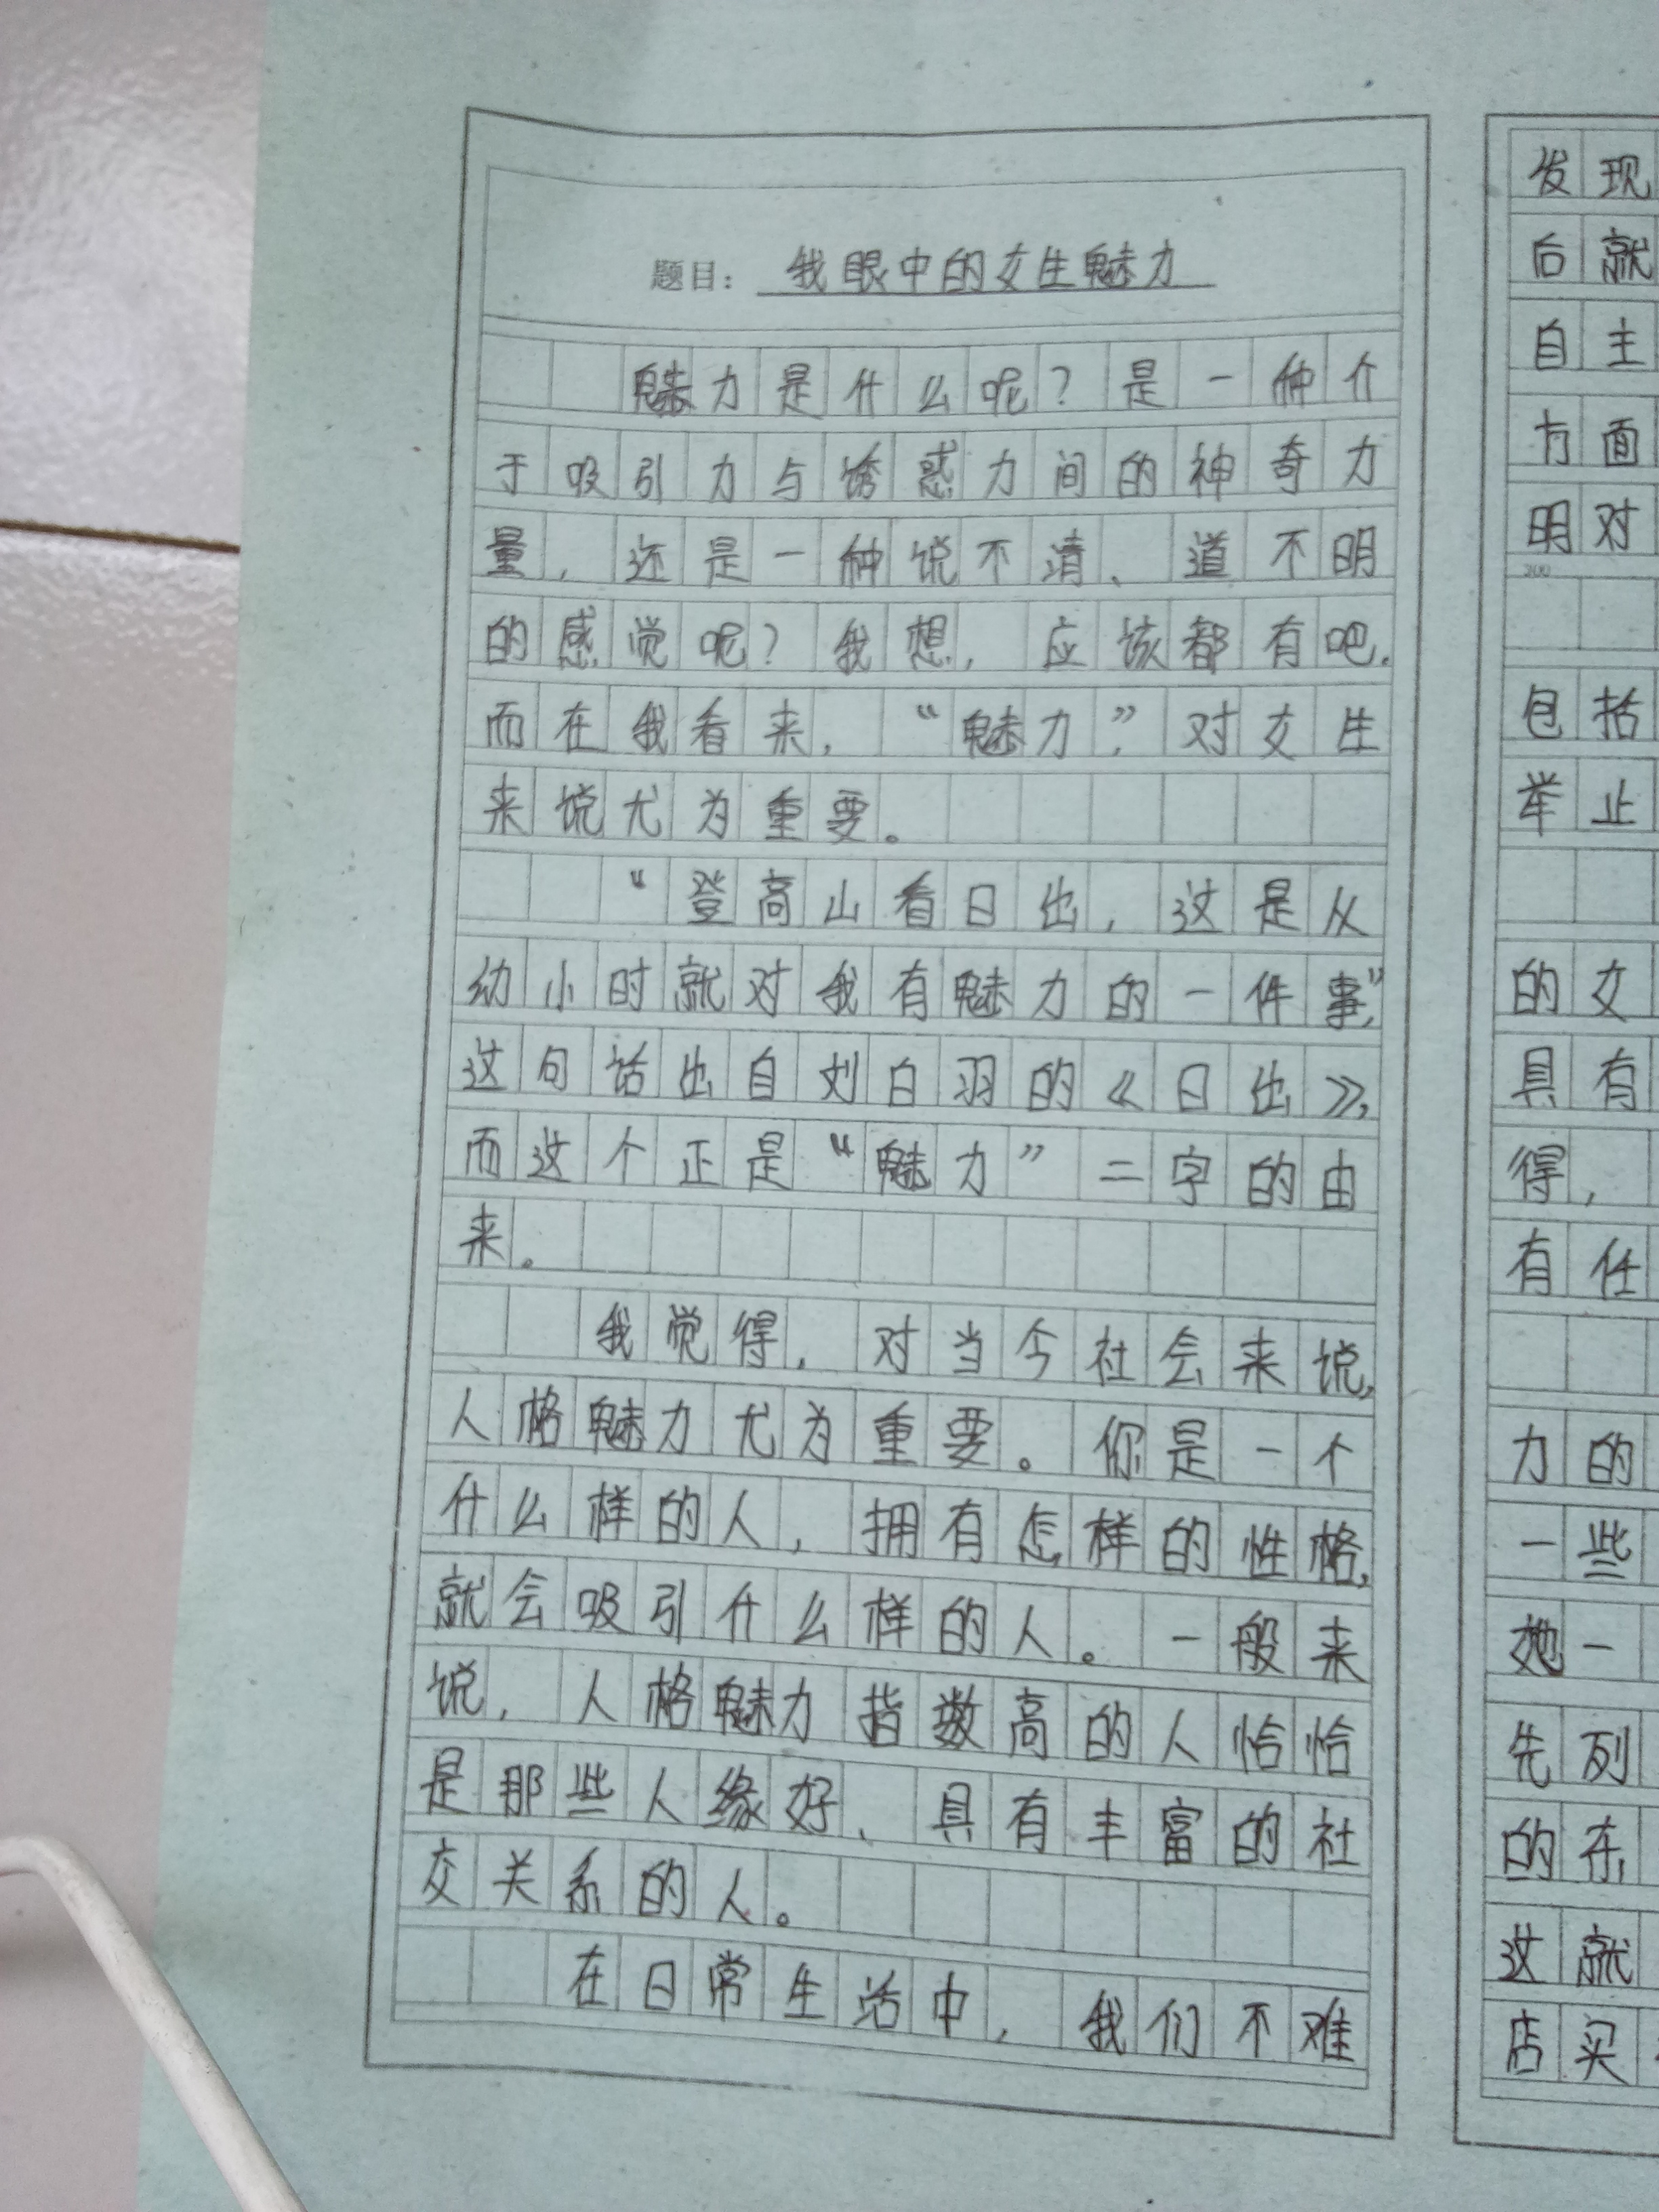 题目： 我眼中的女生魅力
魅力是什么呢？是一种介
于吸引力与诱惑力间的神奇力
量，还是一种说不清、道不明
的感觉呢？我想，应该都有吧.
而在我看来，“魅力”，对女生
来说尤为重要。
“登高山看日出，这是从
幼小时就对我有魅力的一件事”，
这句话出自刘白羽的《日出》，
而这个正是“魅力”二字的由
来。
我觉得，对当今社会来说，
人格魅力尤为重要。你是一个
什么样的人，拥有怎样的性格，
就会吸引什么样的人。一般来
说，人格魅力指数高的人恰恰
是那些人缘好、具有丰富的社
交关系的人。
在日常生活中，我们不难
发现
后就
自主
方面
明对
200
包括
举止
的女
具有
得，
有任
力的
一些
她一
先列
的东
这就
店买